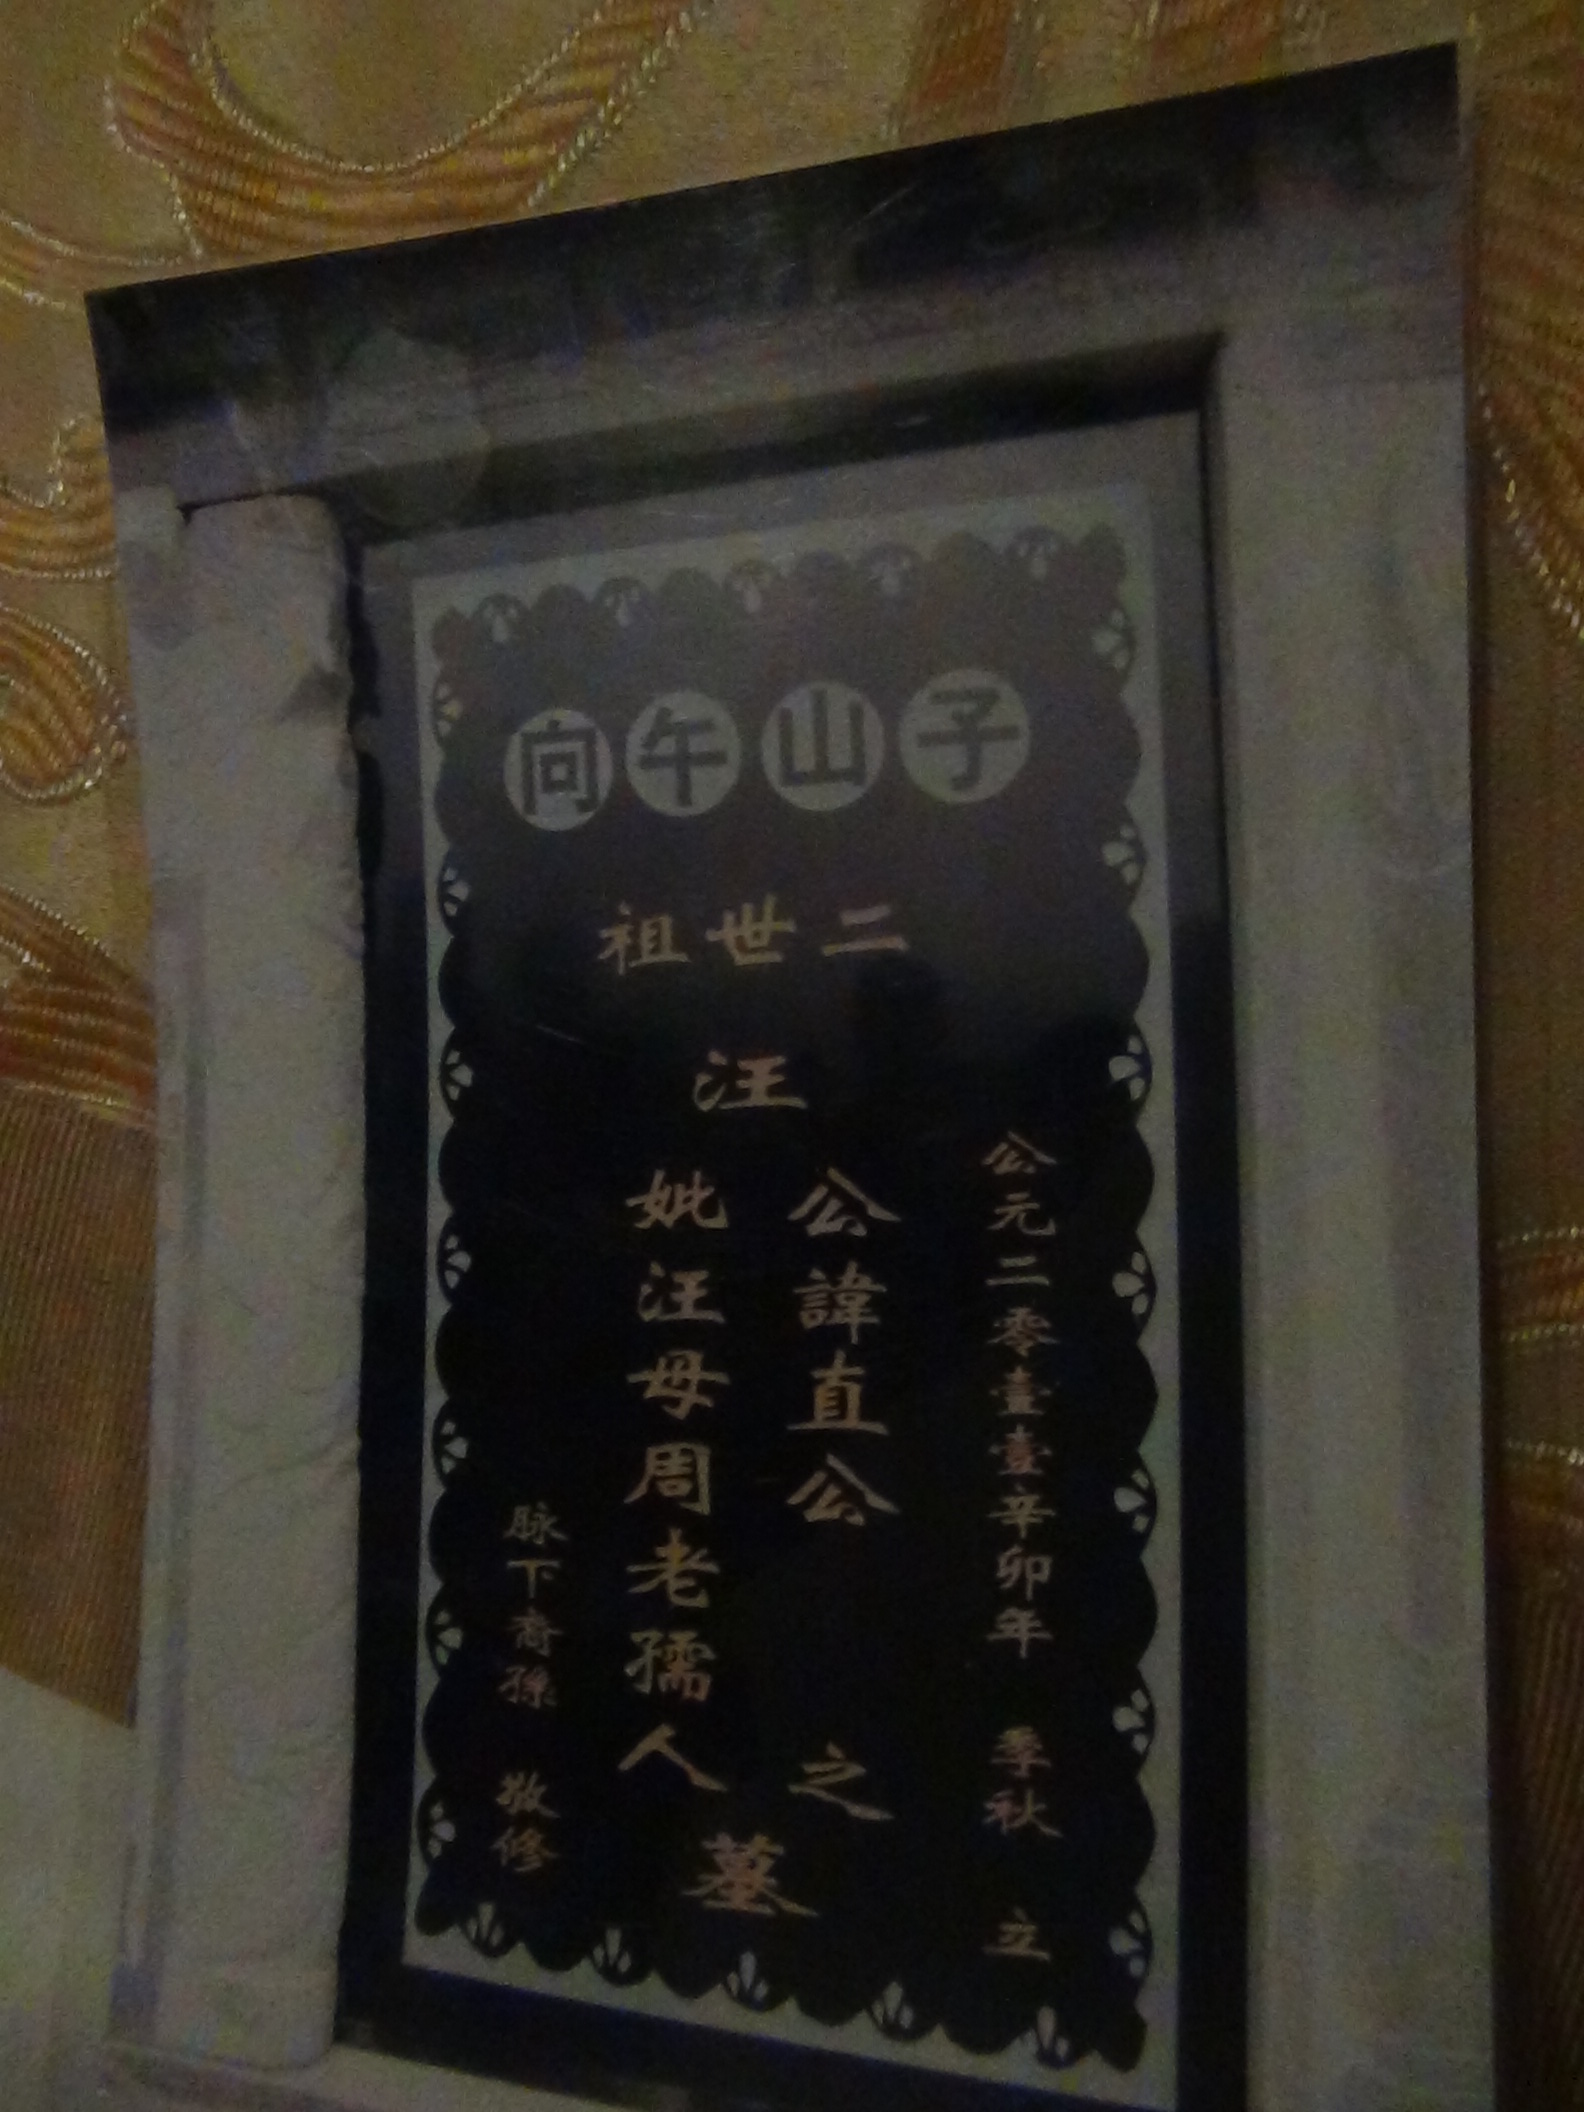 子山午向
二世祖
汪
公元二零壹壹辛卯年 季秋 立
公諱直公 之
妣汪母周老孺人
墓
脉下裔孫 敬修